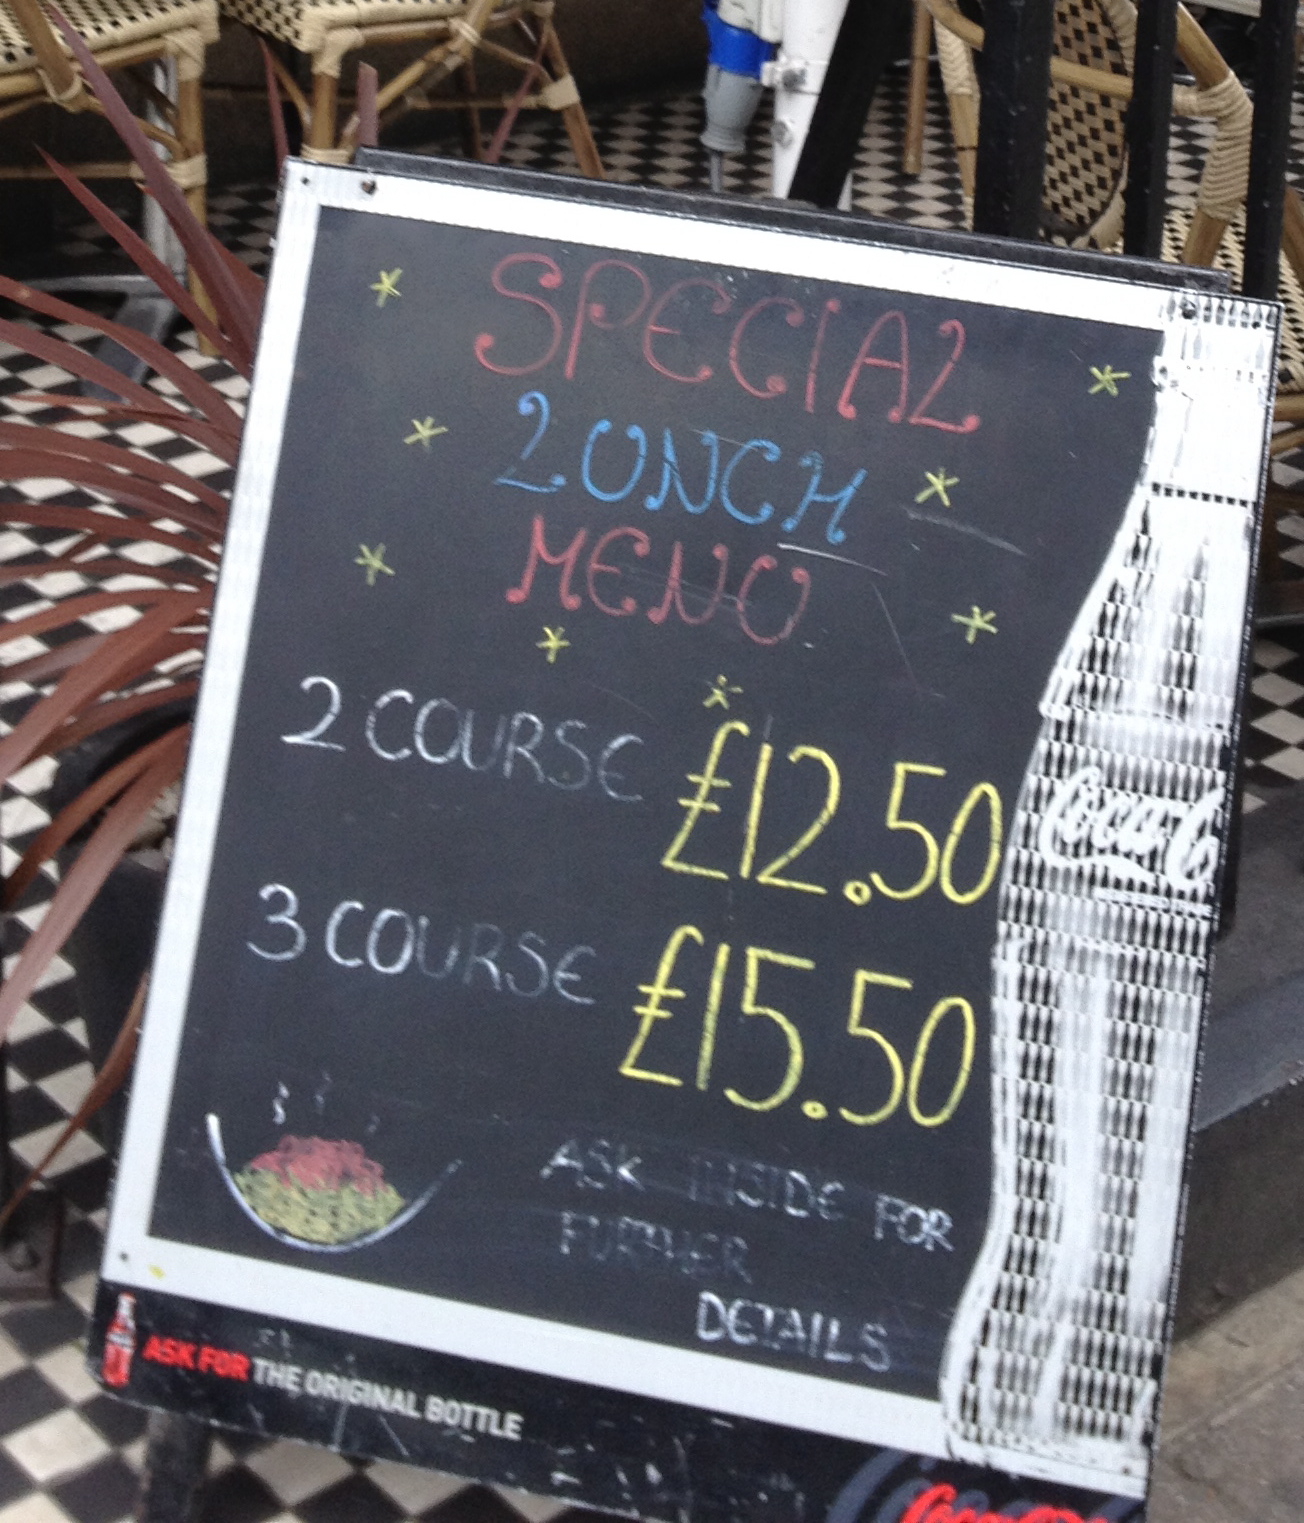 SPECIAL
LUNCH
MENU
2 COURSE £12.50
3 COURSE £15.50
ASK INSIDE FOR
FURTHER
DETAILS
Coca-Co
ASK FOR THE ORIGINAL BOTTLE
Coca-Cola